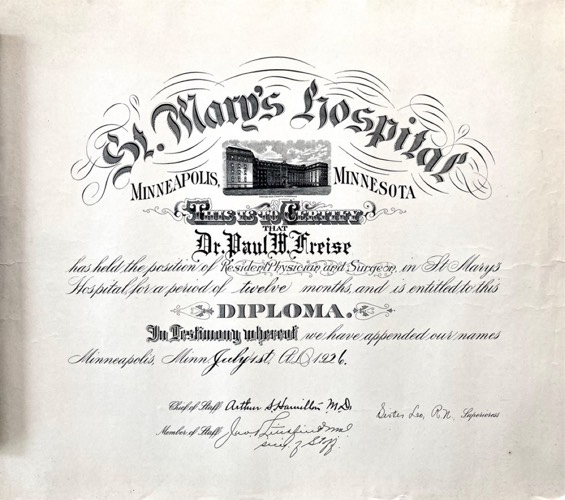 St. Mary's Hospital
MINNEAPOLIS, MINNESOTA
THIS IS TO CERTIFY
THAT
Dr. Paul W. Freise
has held the position of Resident Physician and Surgeon in St Marys
Hospital, for a period of twelve months, and is entitled to this
DIPLOMA.
In Testimony whereof we have appended our names
Minneapolis, Minn July 1st A.D. 1926.
Chief of Staff Arthur S. Hamilton M.D.
Sister Leo, R.N. Superioress
Member of Staff